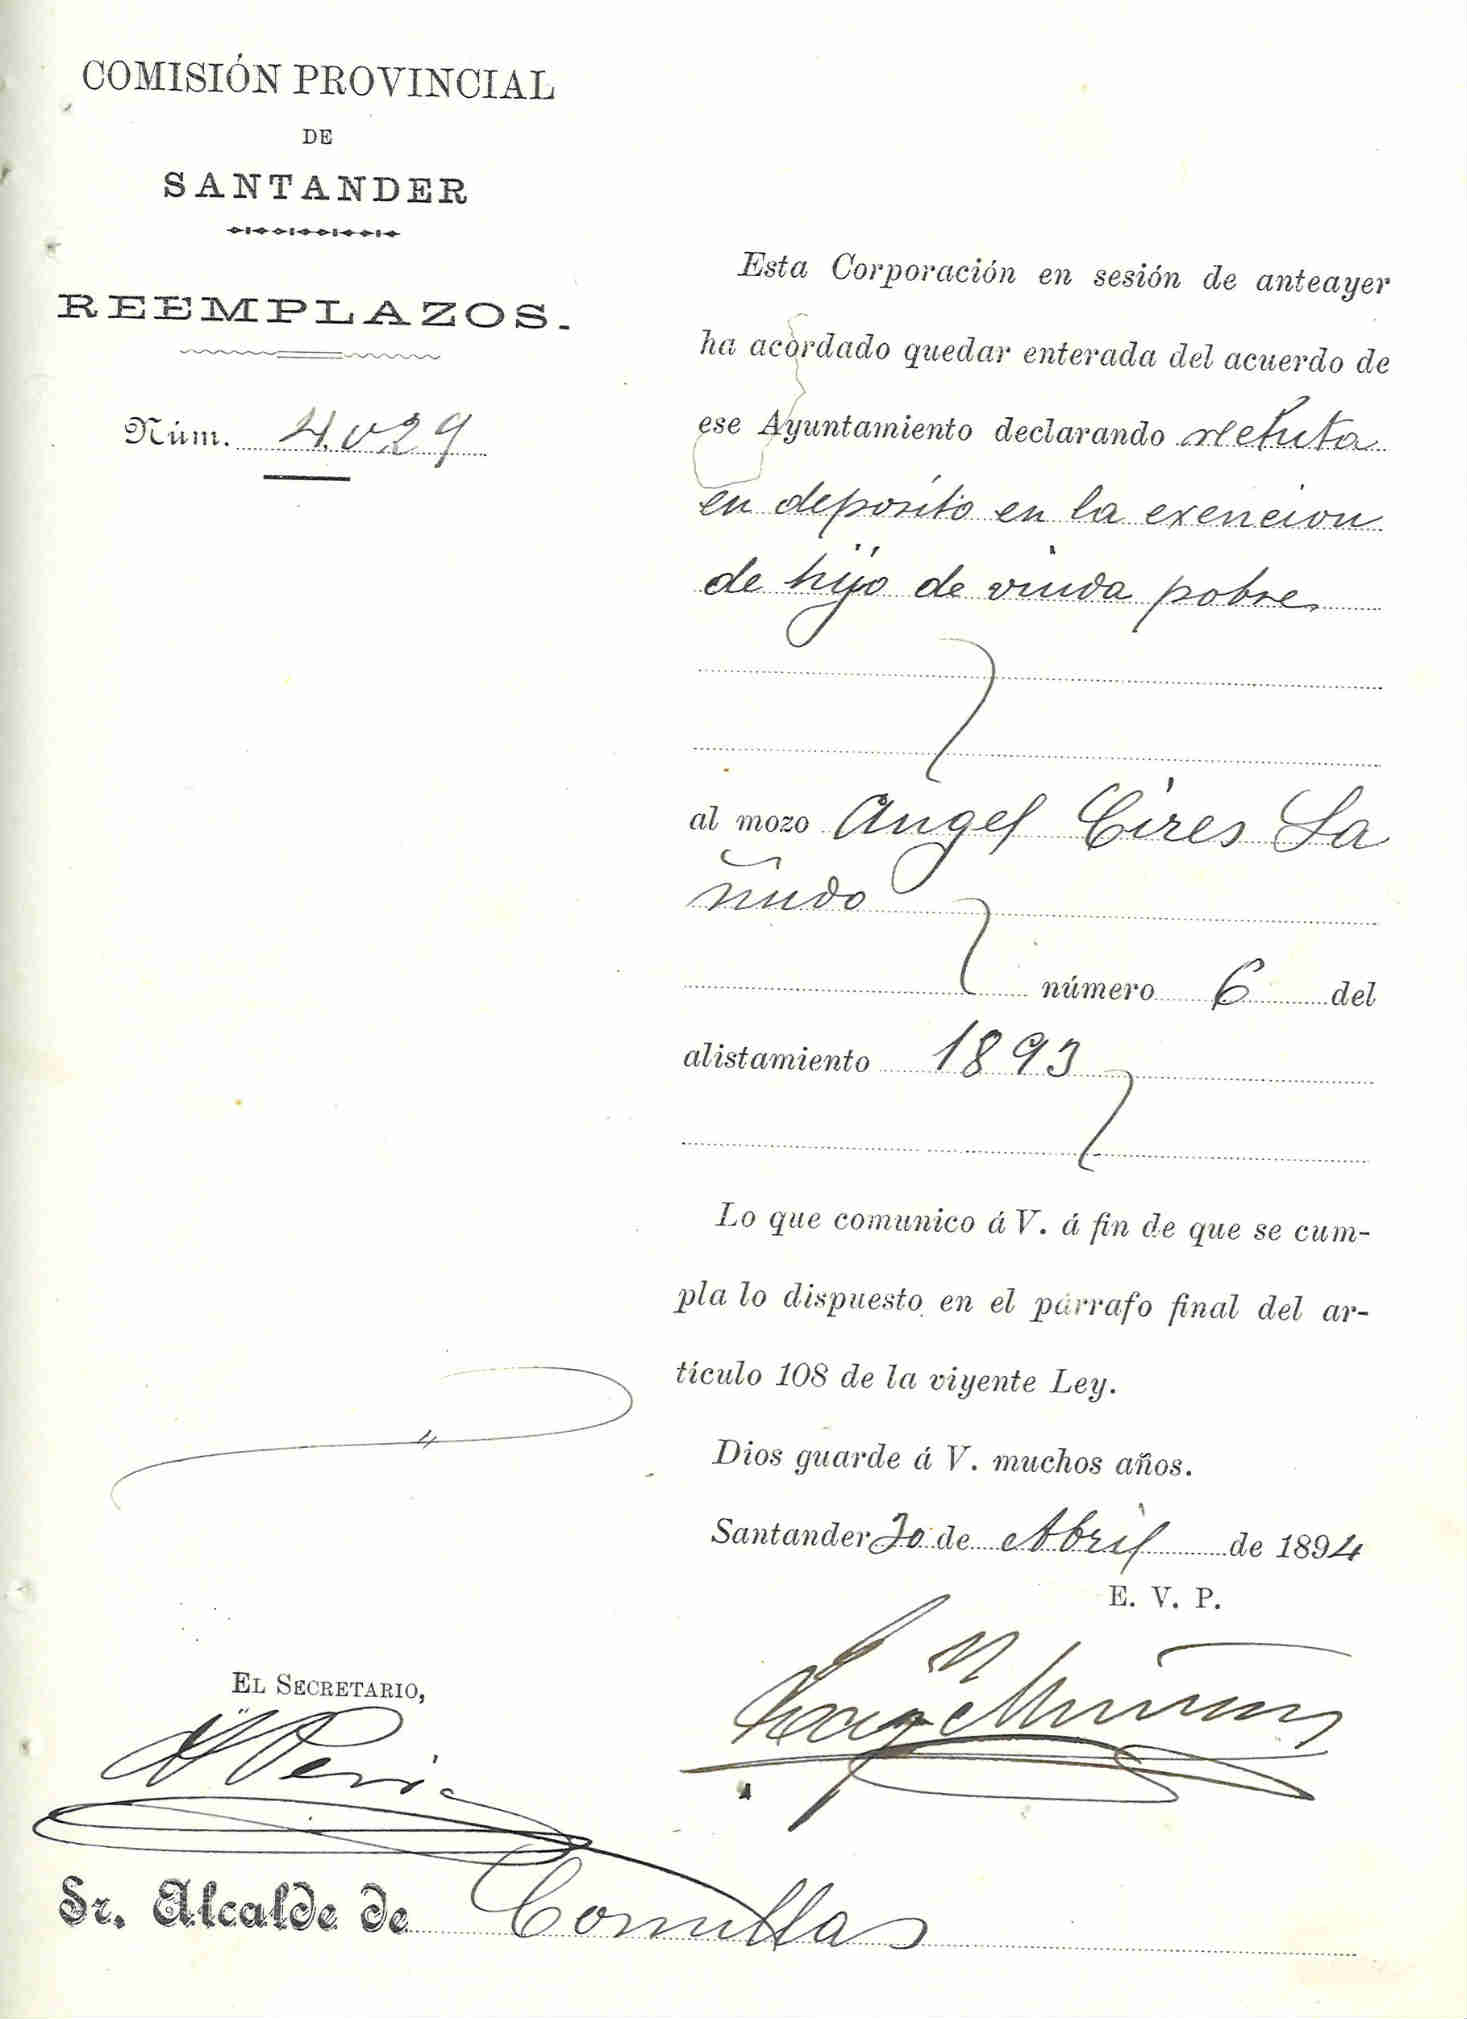 COMISIÓN PROVINCIAL
DE
SANTANDER
REEMPLAZOS.
Núm. 4.029
Esta Corporación en sesión de anteayer
ha acordado quedar enterada del acuerdo de
ese Ayuntamiento declarando recluta
en depósito en la exencion
de hijo de viuda pobre
al mozo Angel Cires Sa
ñudo
número 6 del
alistamiento 1893
Lo que comunico á V. á fin de que se cum-
pla lo dispuesto en el párrafo final del ar-
tículo 108 de la vigente Ley.
Dios guarde á V. muchos años.
Santander 20 de Abril de 1894
E. V. P.
EL SECRETARIO,
Sr. Alcalde de Comillas